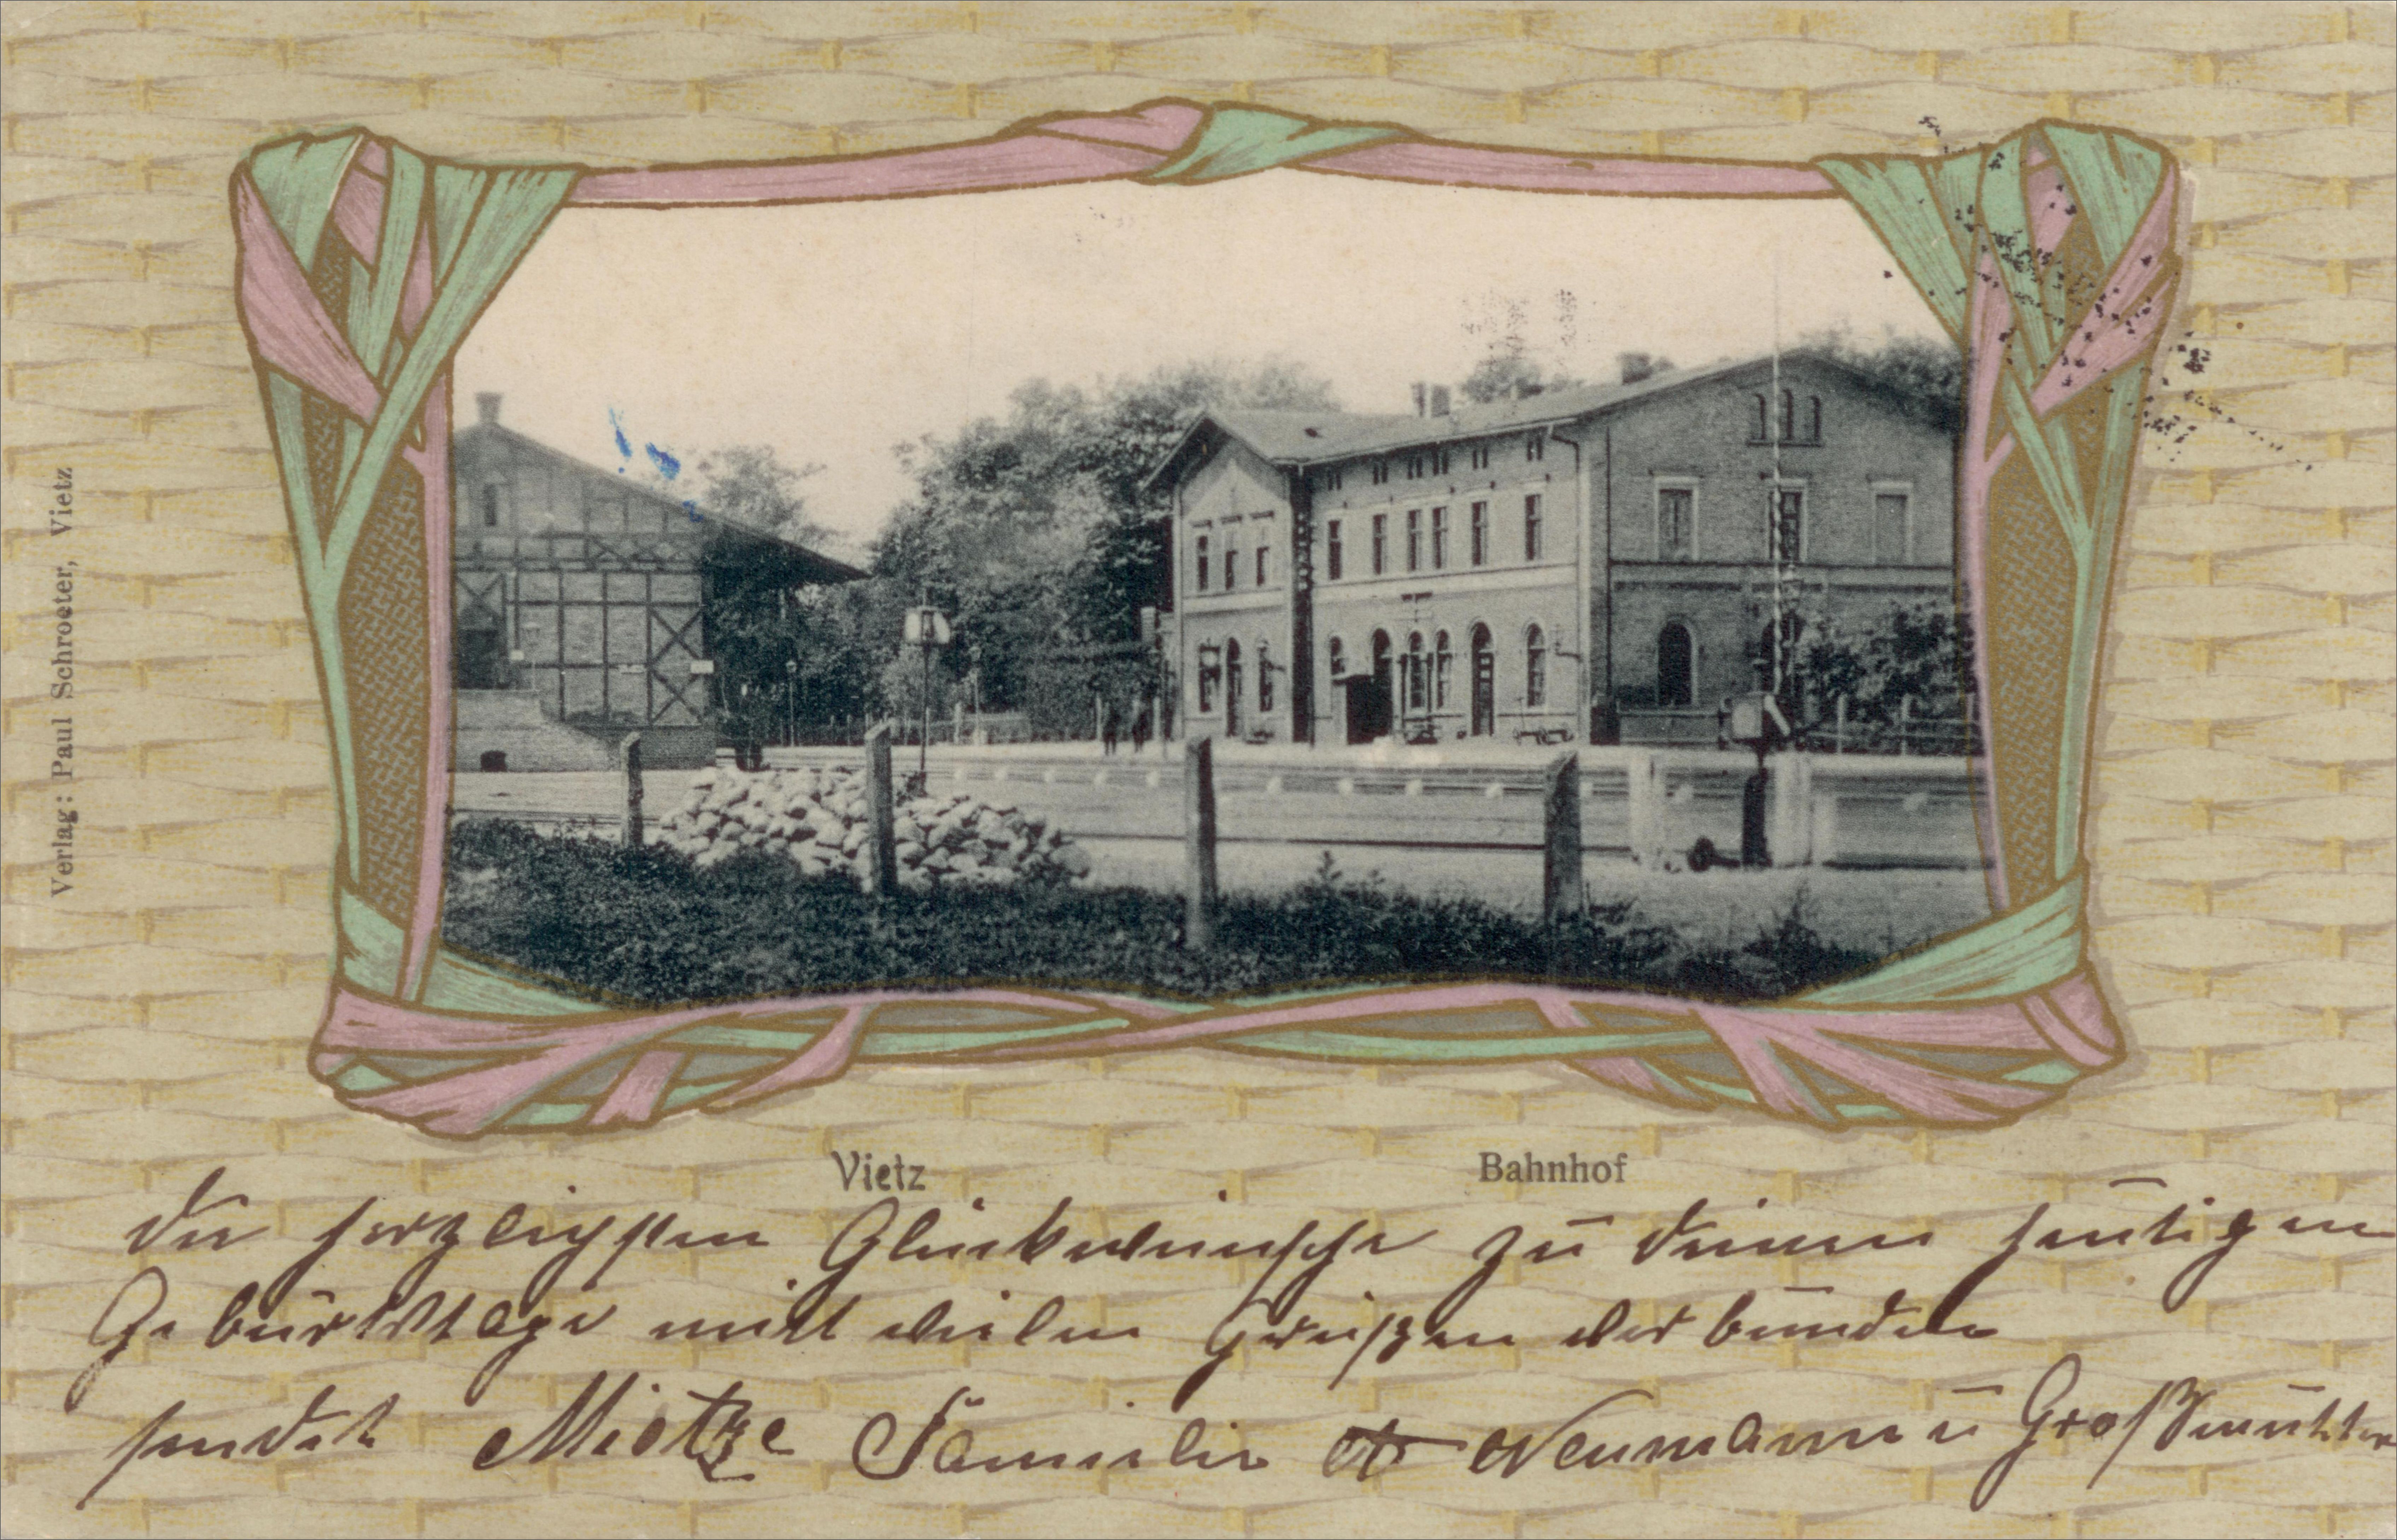 Verlag: Paul Schroeter, Vietz
Vietz Bahnhof
Die herzlichsten Glückwünsche zu deinem heutigen
Geburtstage mitt vielen Grüßen verbunden
sendet Mietze Familie Neumann u Großmutter